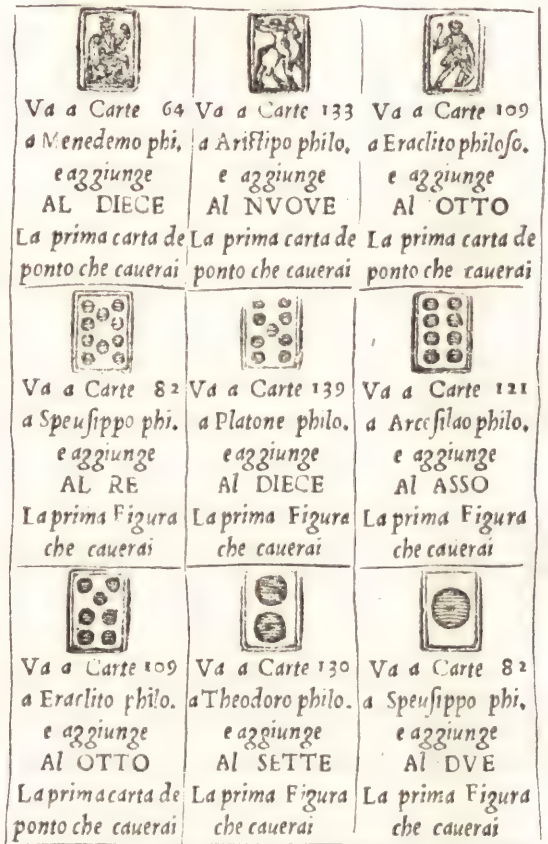 Va a Carte 64
a Menedemo phi.
e aggiunge
AL DIECE
La prima carta de
ponto che cauerai
Va a Carte 133
a Ariſtipo philo.
e aggiunge
Al NVOVE
La prima carta de
ponto che cauerai
Va a Carte 109
a Eraclito philoſo.
e aggiunge
Al OTTO
La prima carta de
ponto che cauerai
Va a Carte 82
a Speuſippo phi.
e aggiunge
AL RE
La prima Figura
che cauerai
Va a Carte 139
a Platone philo.
e aggiunge
Al DIECE
La prima Figura
che cauerai
Va a Carte 121
a Arceſilao philo.
e aggiunge
Al ASSO
La prima Figura
che cauerai
Va a Carte 109
a Eraclito philo.
e aggiunge
Al OTTO
La prima carta de
ponto che cauerai
Va a Carte 130
a Theodoro philo.
e aggiunge
Al SETTE
La prima Figura
che cauerai
Va a Carte 82
a Speuſippo phi.
e aggiunge
Al DVE
La prima Figura
che cauerai